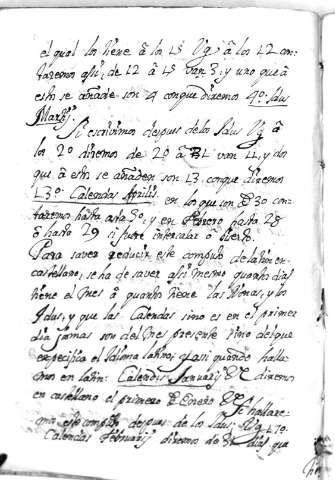 el qual los tiene â los 15 Vg. â los 12 con-
taremos assi, de 12 â 15 van 3; y uno que â
esto se añade son 4 conque diremos 4º. Idus
Martij.
Si escrivimos despues de los Idus Vg. â
los 20 diremos de 20 â 31 van 11, y dos
que â esto se añaden son 13, conque diremos
13º Calendas Aprilis. en los que son 30 con-
taremos hasta 30; y en Febrero hasta 28
ô hasta 29 si fuere intercalar ô
Para saver reducir este computo de latin en
castellano, se ha de saver assi mesmo quantos dias
tiene el Mes â quantos tiene las Nonas, y los
Idus, y que las Calendas sino es en el primer
dia jamas son del Mes presente sino del que
expecifica el Idioma latino; y assi quando halla-
mos en latin: Calendis Januarij &c. diremos
en castellano el primero de Enero &c. Si hallare-
mos este computo despues de los Idus, Vg. 17º
Calendas Februarij diremos de 31 dias que